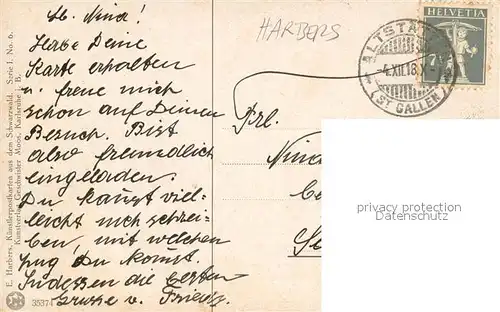 Lb. Nina!
Habe Deine
Karte erhalten
u. freue mich
schon auf Deinen
Besuch. Bist
also freundlich
eingeladen.
Du kannst viel-
leicht noch schrei-
ben, mit welchem
Zug Du kommst.
Indessen die besten
Grüsse v. Friedy.
HARBERS
ALTSTÄTTEN
-4.XII.18.X
(ST GALLEN)
HELVETIA
7½
Frl.
Nina
privacy protection
Datenschutz
E. Harbers, Künstlerpostkarten aus dem Schwarzwald. Serie I. No. 6.
Kunstverlag Geschwister Moos, Karlsruhe i. B.
35374